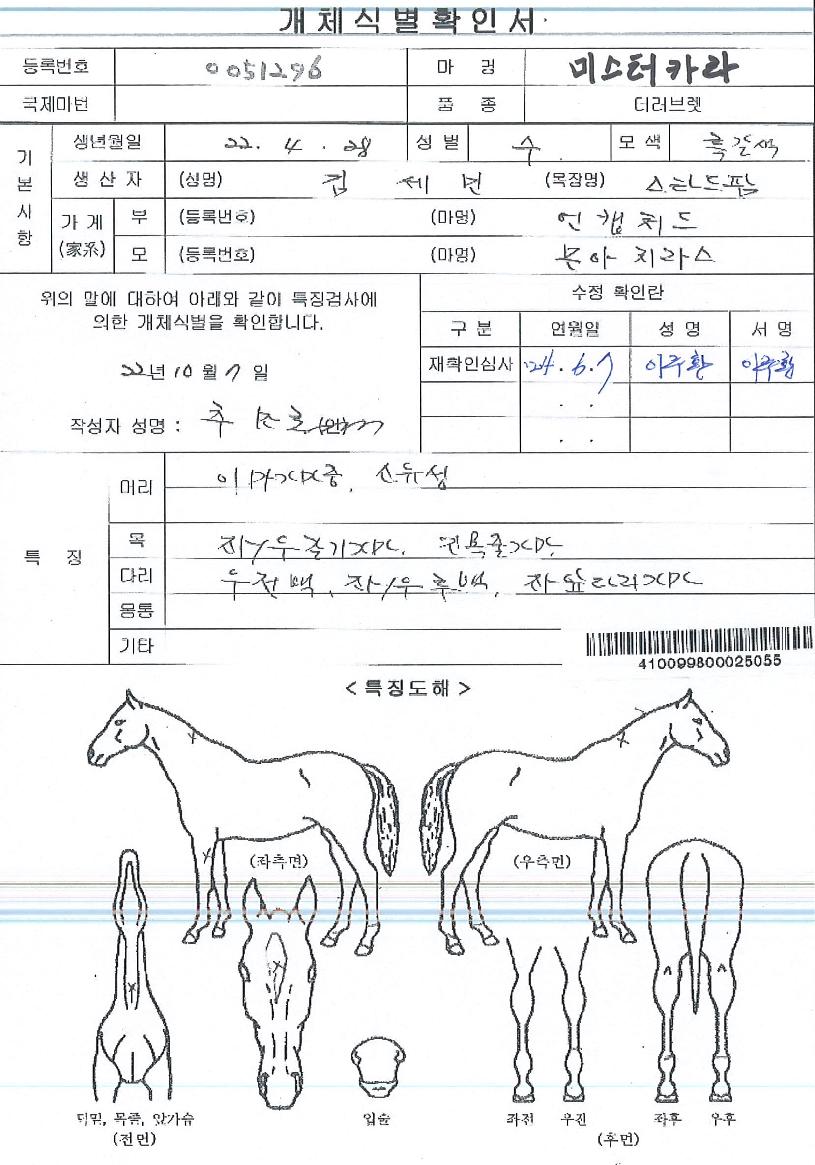 개체식별확인서
등록번호 0051296 마 명 미스터카라
국제마번 품 종 더러브렛
기본사항
생년월일 22. 4. 28 성별 수 모색 흑갈색
생산자 (성명) 김세연 (목장명) 스타드팜
가계 (家系) 부 (등록번호) (마명) 언캡처드
모 (등록번호) (마명) 문아치라스
위의 말에 대하여 아래와 같이 특징검사에
의한 개체식별을 확인합니다.
22년 10월 7일
작성자 성명 :
수정 확인란
구 분 연월일 성 명 서 명
재확인심사 '24. 6. 7 이주환 이주환
. .
. .
특 징
머리
목
다리 우전백, 좌/우후백,
몸통
기타
410099800025055
< 특징도해 >
(좌측면) (우측면)
턱밑, 목줄, 앞가슴 입술 좌전 우전 좌후 우후
(전면) (후면)